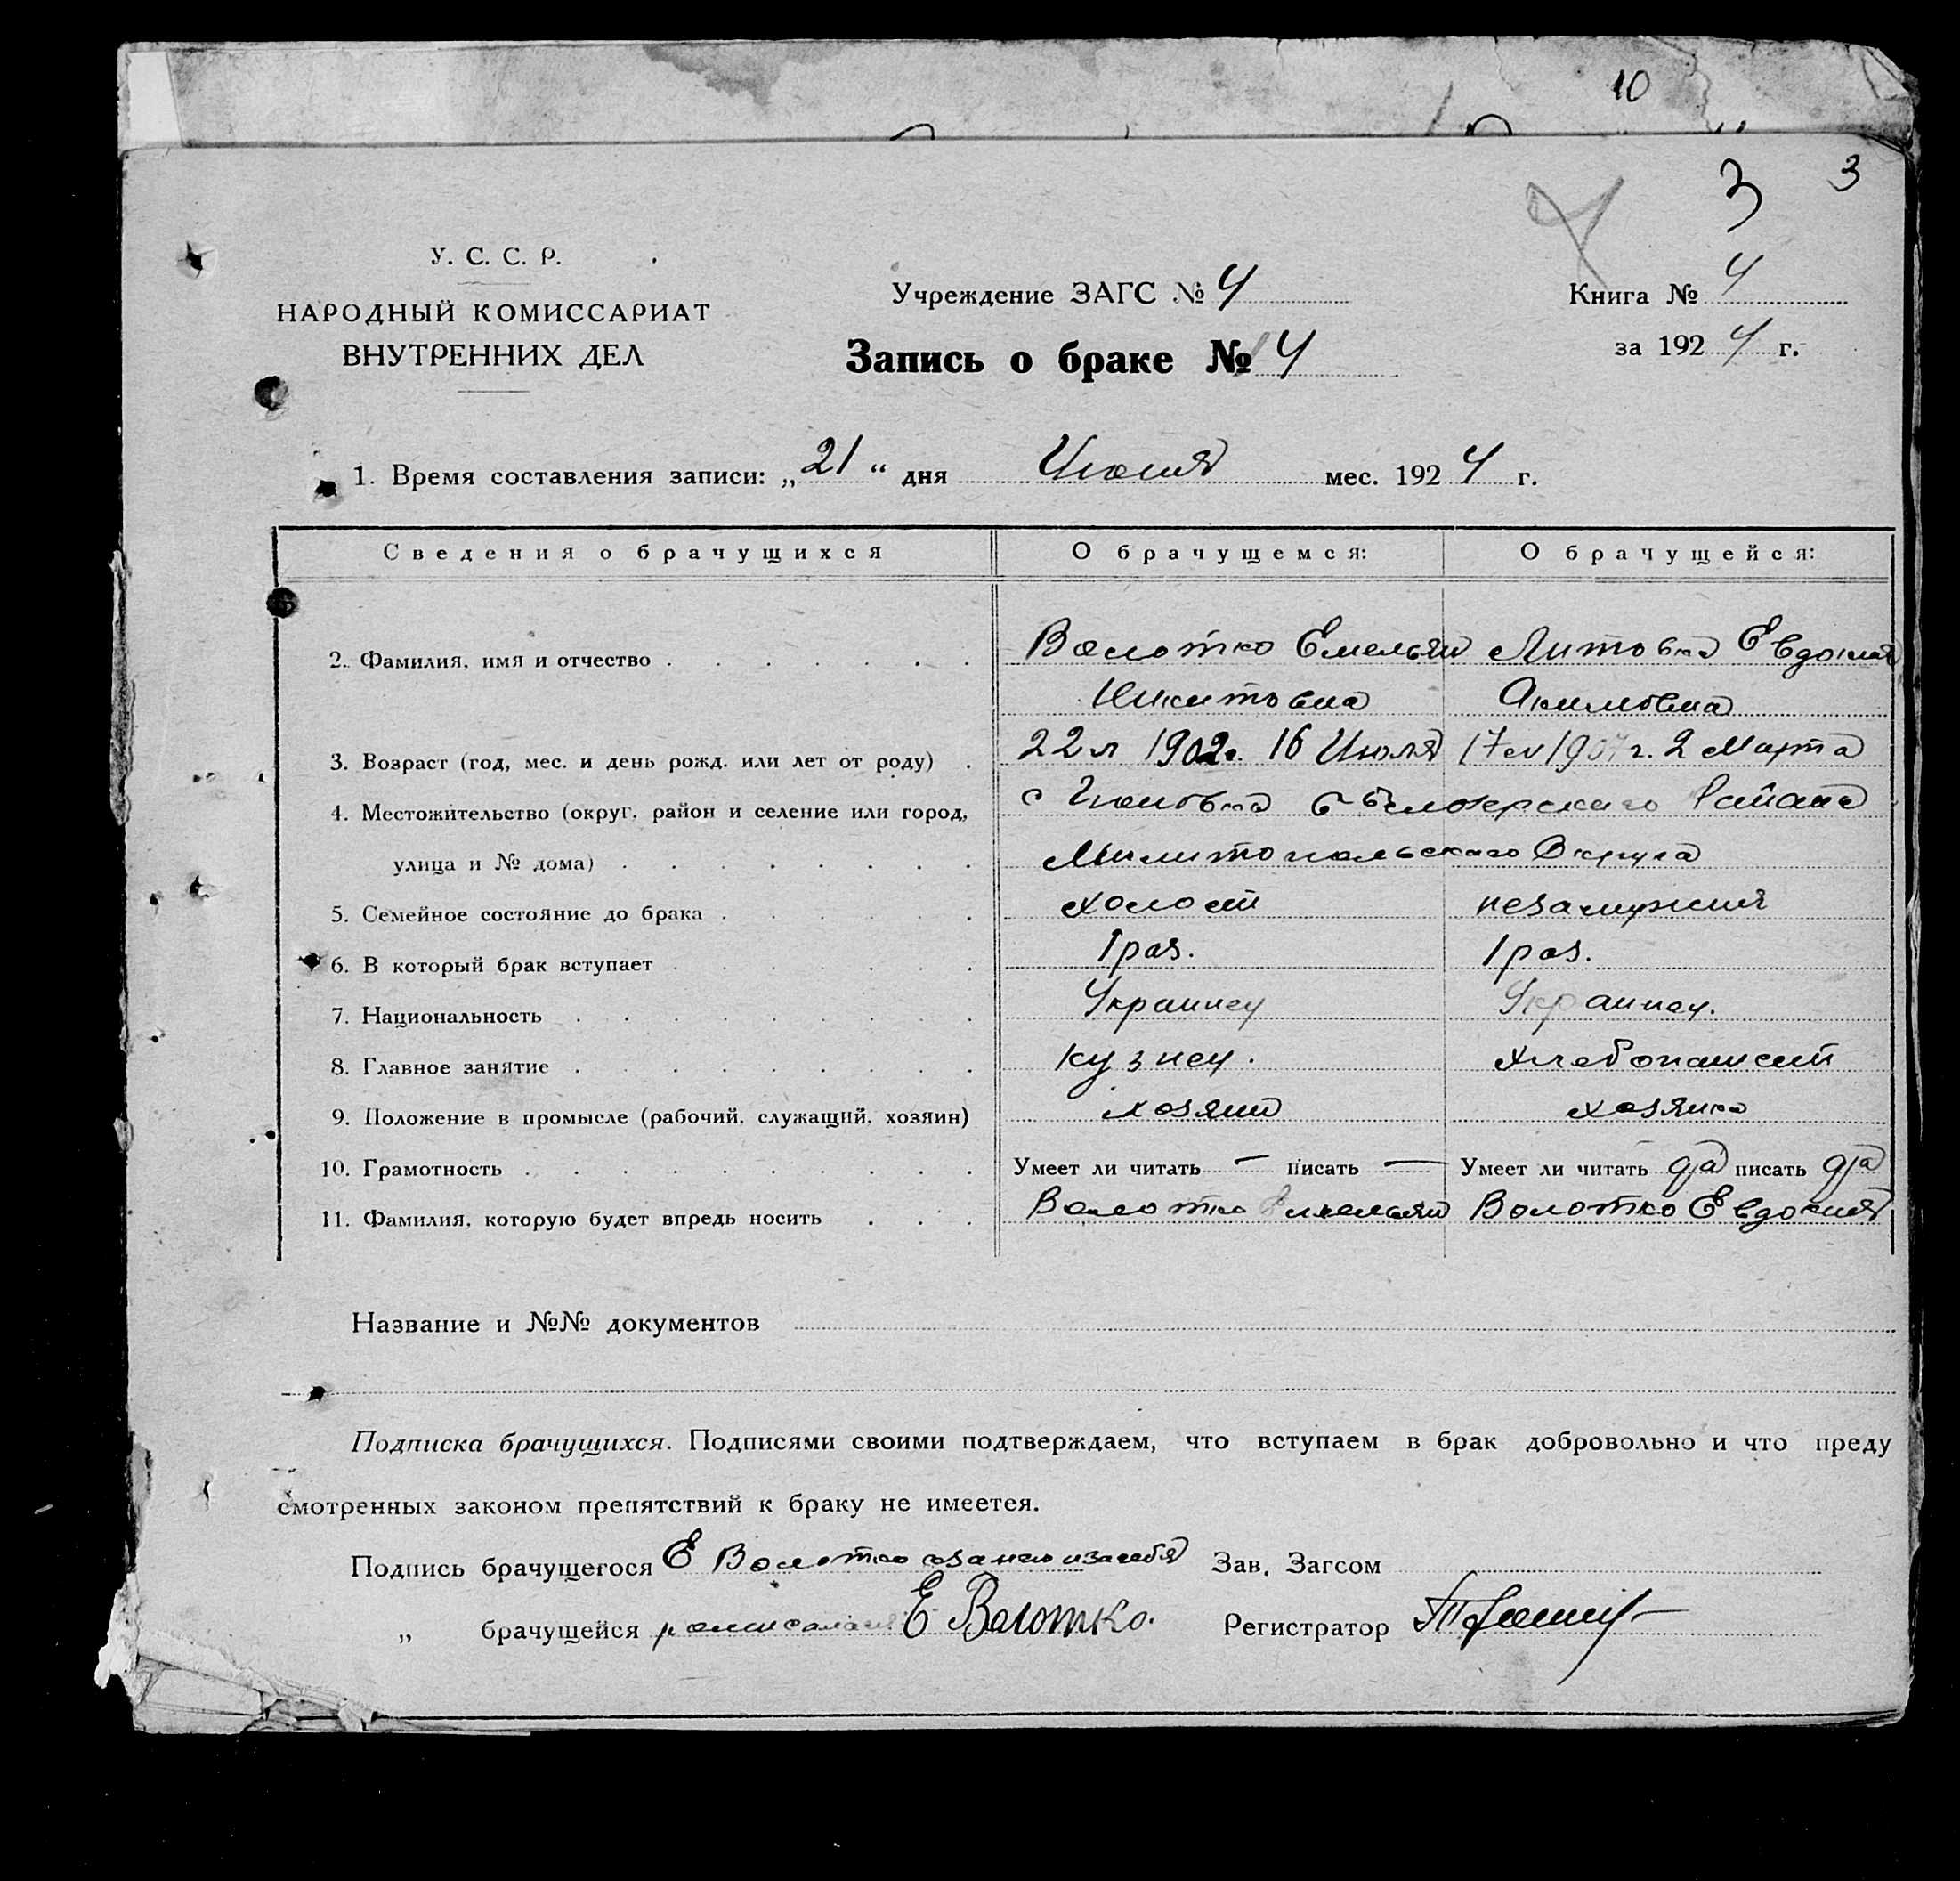 10
3 3
У. С. С. Р.
НАРОДНЫЙ КОМИССАРИАТ
ВНУТРЕННИХ ДЕЛ
Учреждение ЗАГС № 4
Запись о браке № 4
Книга № 4
за 1924 г.
1. Время составления записи: „21“ дня мес. 1924 г.
Сведения о брачущихся О брачущемся: О брачущейся:
2. Фамилия, имя и отчество Волотко Емельян Литовка Евдокия
Никитовна Акимовна
3. Возраст (год, мес. и день рожд. или лет от роду) 22 л 1902 г. 16 Июля 17 л 1907 г. 2 Марта
4. Местожительство (округ, район и селение или город, с Б Белозерскаго Района
улица и № дома) Милитопольскаго Округа
5. Семейное состояние до брака холост незамужния
6. В который брак вступает 1 раз. 1 раз.
7. Национальность Украинец Украинец.
8. Главное занятие кузнец. хлебопашест
9. Положение в промысле (рабочий, служащий, хозяин) хозяин хозяика
10. Грамотность Умеет ли читать — писать — Умеет ли читать да писать да
11. Фамилия, которую будет впредь носить Волотко Емельян Волотко Евдокия
Название и №№ документов
Подписка брачущихся. Подписями своими подтверждаем, что вступаем в брак добровольно и что преду
смотренных законом препятствий к браку не имеетея.
Подпись брачущегося Е Волотко Зав. Загсом
„ брачущейся Е Волотко. Регистратор